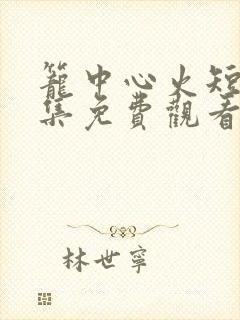 籠中心火短
集免費觀看
林世寧